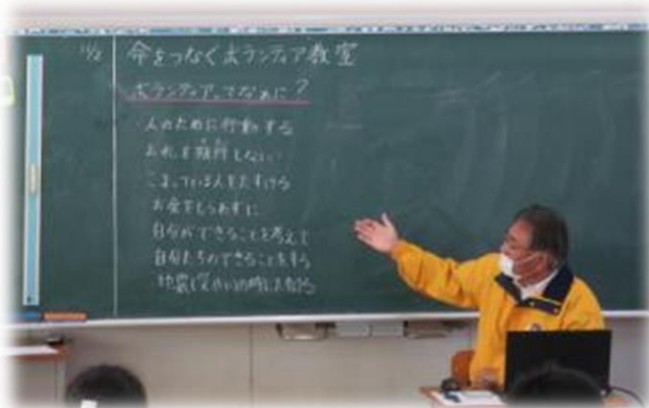 11/2
命をつなぐボランティア教室
ボランティアってなあに？
・人のために行動する
お礼を期待しない
こまっている人をたすける
お金をもらわずに
自分ができることを考えて
自分たちのできることをする
地震や災害の時に